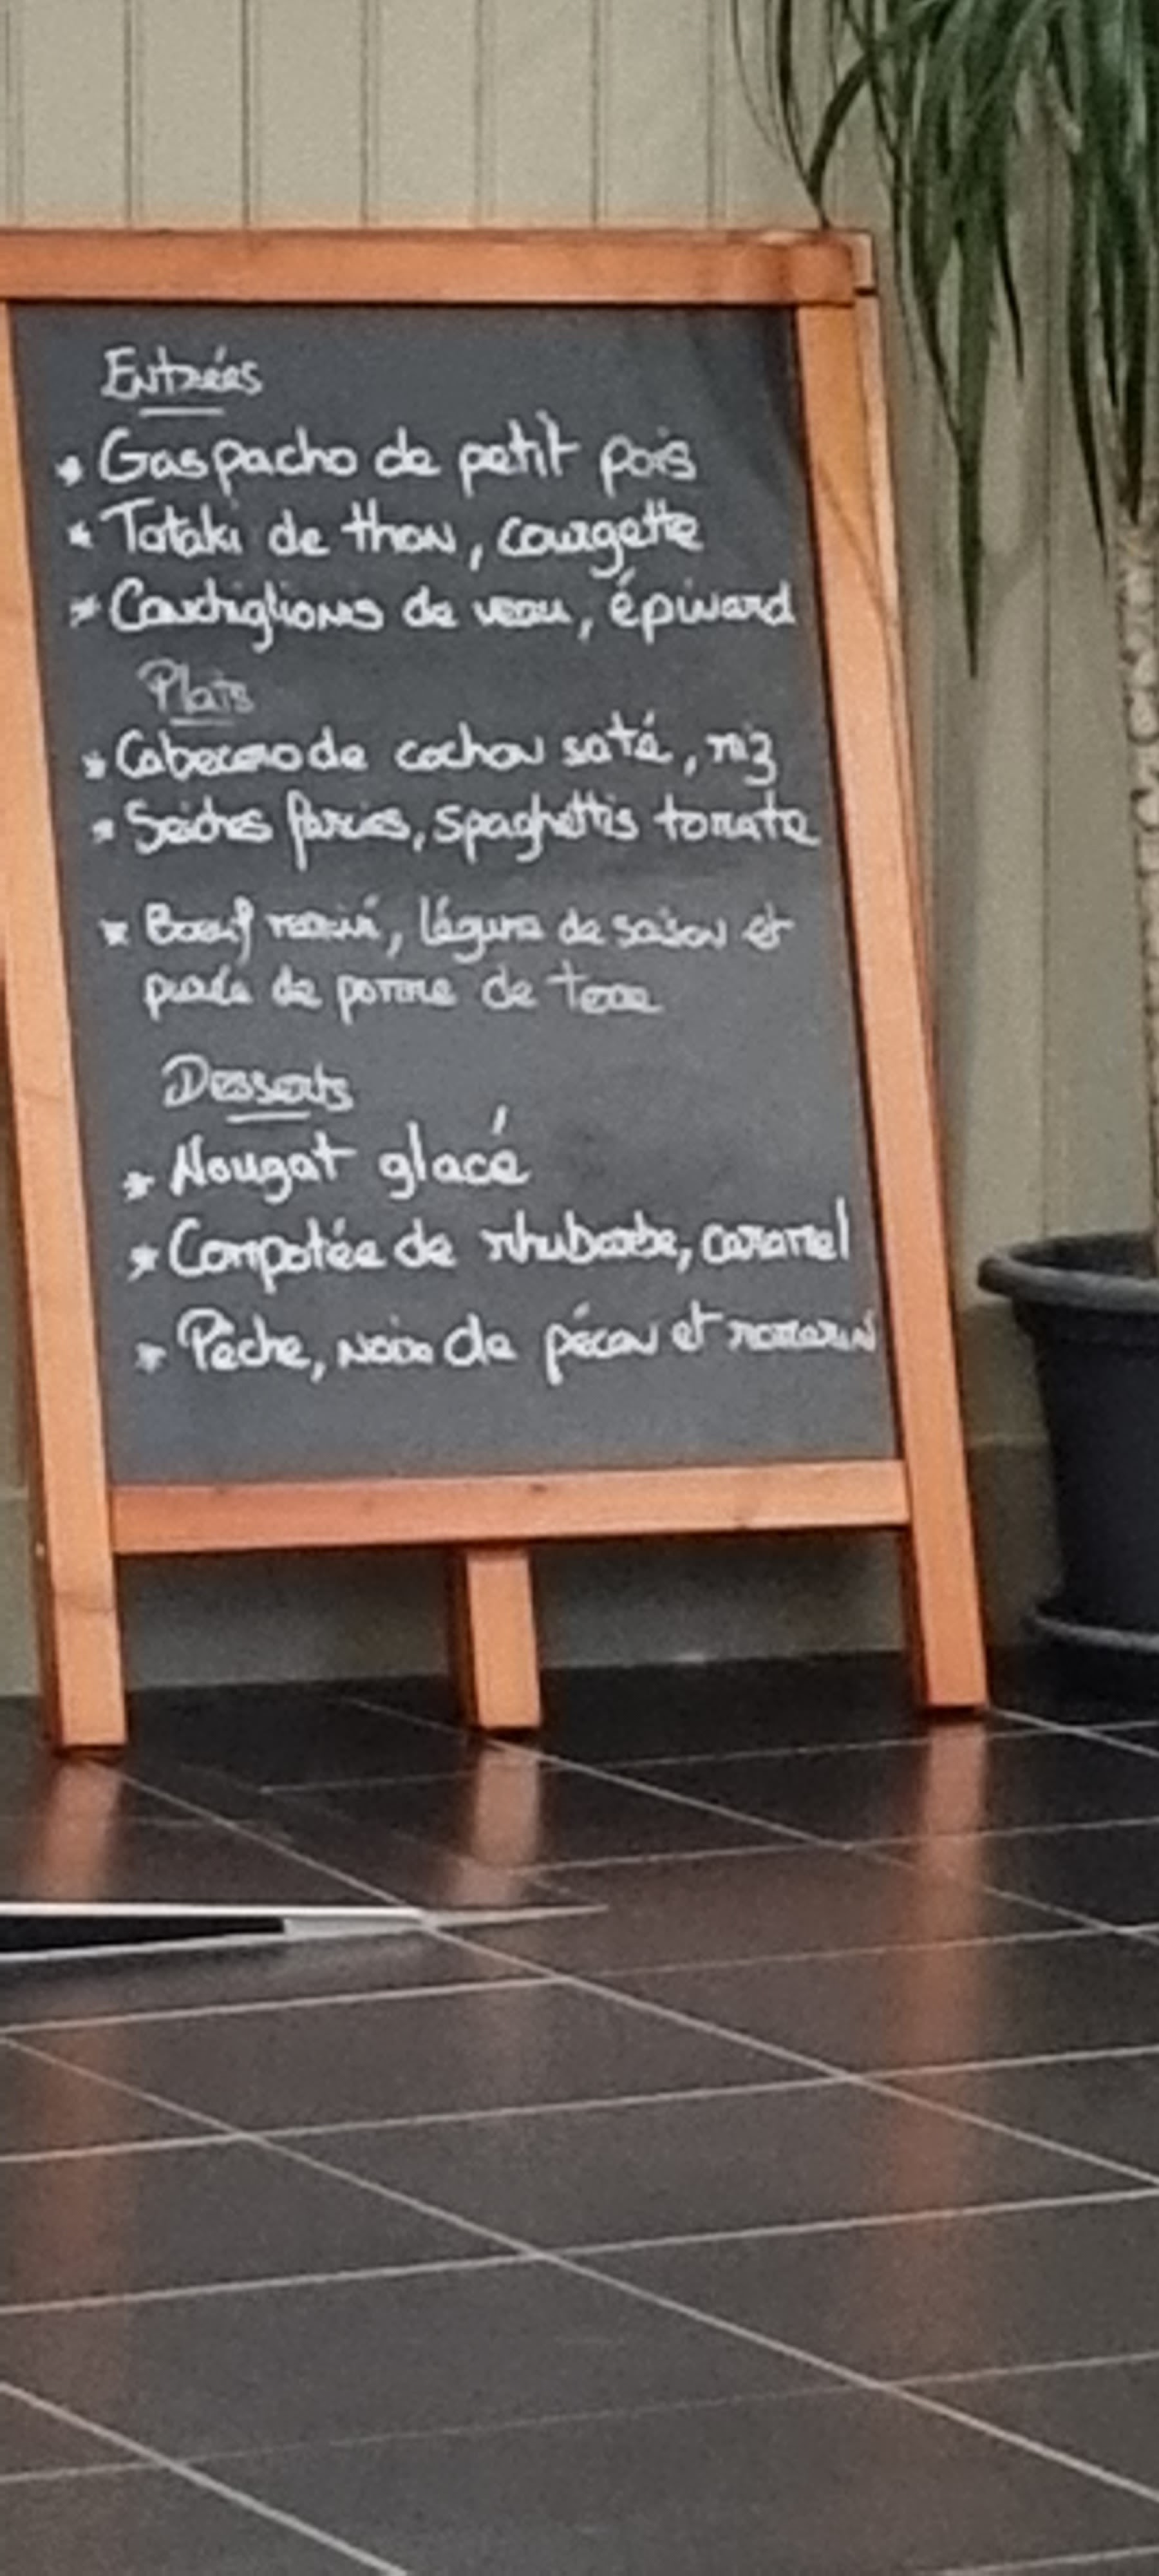 Entrées
* Gaspacho de petit pois
* Tataki de thon, courgette
* de veau, épinard
Plats
* de cochon saté, riz
* Seiches farcies, spaghettis tomate
* Boeuf mariné, légume de saison et
purée de pomme de terre
Desserts
* Nougat glacé
* Compotée de rhubarbe, caramel
* Pêche, noix de pécan et romarin